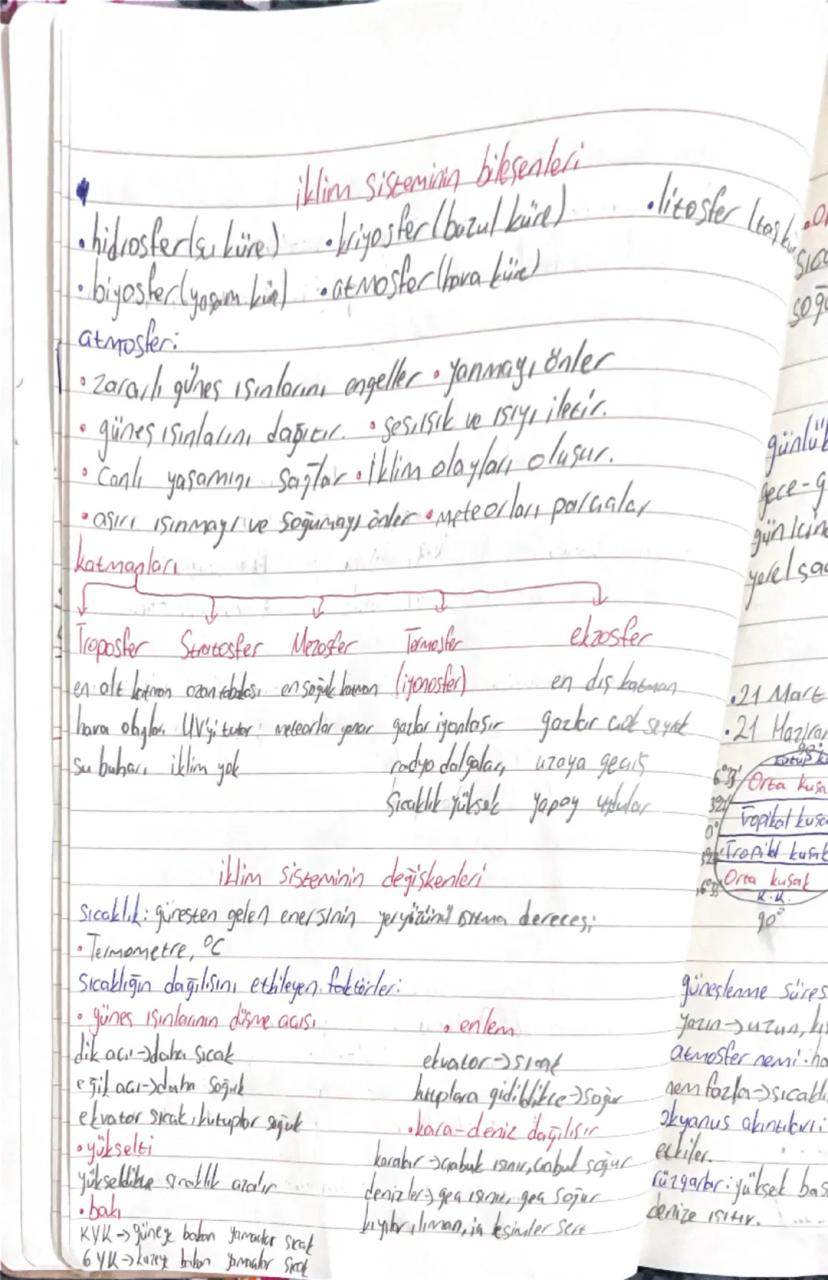 iklim sisteminin bileşenleri
• hidrosfer (su küre) • kriyosfer (buzul küre) • litosfer (taş kü
• biyosfer (yaşam küre) • atmosfer (hava küre)
atmosfer:
• zararlı güneş ışınlarını engeller • yanmayı önler
• güneş ışınlarını dağıtır. • ses, ışık ve ısıyı iletir.
• canlı yaşamını sağlar • iklim olayları oluşur.
• aşırı ısınmayı ve soğumayı önler • meteorları parçalar
katmanları
Troposfer Stratosfer Mezosfer Termosfer ekzosfer
en alt katman ozon tabakası en soğuk katman (iyonosfer) en dış katman
hava olayları UV'yi tutar meteorlar yanar gazlar iyonlaşır gazlar çok seyrek
su buharı iklim yok radyo dalgaları uzaya geçiş
sıcaklık yüksek yapay uydular
iklim sisteminin değişkenleri
sıcaklık: güneşten gelen enerjinin yeryüzünü ısıtma derecesi
• Termometre, °C
sıcaklığın dağılışını etkileyen faktörler:
• güneş ışınlarının düşme açısı • enlem
dik açı → daha sıcak ekvator → sıcak
eğik açı → daha soğuk kutuplara gidildikçe → soğur
ekvator sıcak, kutuplar soğuk • kara-deniz dağılışı
• yükselti karalar → çabuk ısınır, çabuk soğur
yükseldikçe sıcaklık azalır denizler → geç ısınır, geç soğur
• bakı kıyılar ılıman, iç kesimler sert
KYK → güneye bakan yamaçlar sıcak
GYK → kuzeye bakan yamaçlar sıcak
günlük
gece-g
gün için
yerel saa
• 21 Mart
• 21 Haziran
90°
Orta kuşa
Tropikal kuşa
0°
Tropikal kuşak
Orta kuşak
K.K.
90°
güneşlenme süres
yazın → uzun, kı
atmosfer nemi: ha
nem fazla → sıcaklı
okyanus akıntıları:
etkiler.
rüzgarlar: yüksek bas
denize ısıtır.